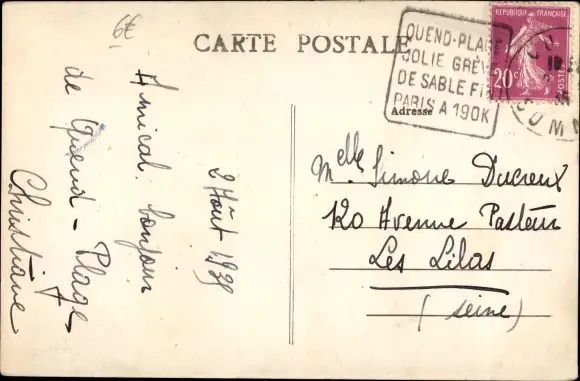 6€
CARTE POSTALE
QUEND-PLAGE
JOLIE GRÈV
DE SABLE FIN
PARIS A 190K
RÉPUBLIQUE FRANÇAISE
20c
POSTES
SOMM
Adresse
Amical bonjour
de Quend-Plage
Christiane
2 Août 1939
Melle Simone Ducreux
120 Avenue Pasteur
Les Lilas
(Seine)